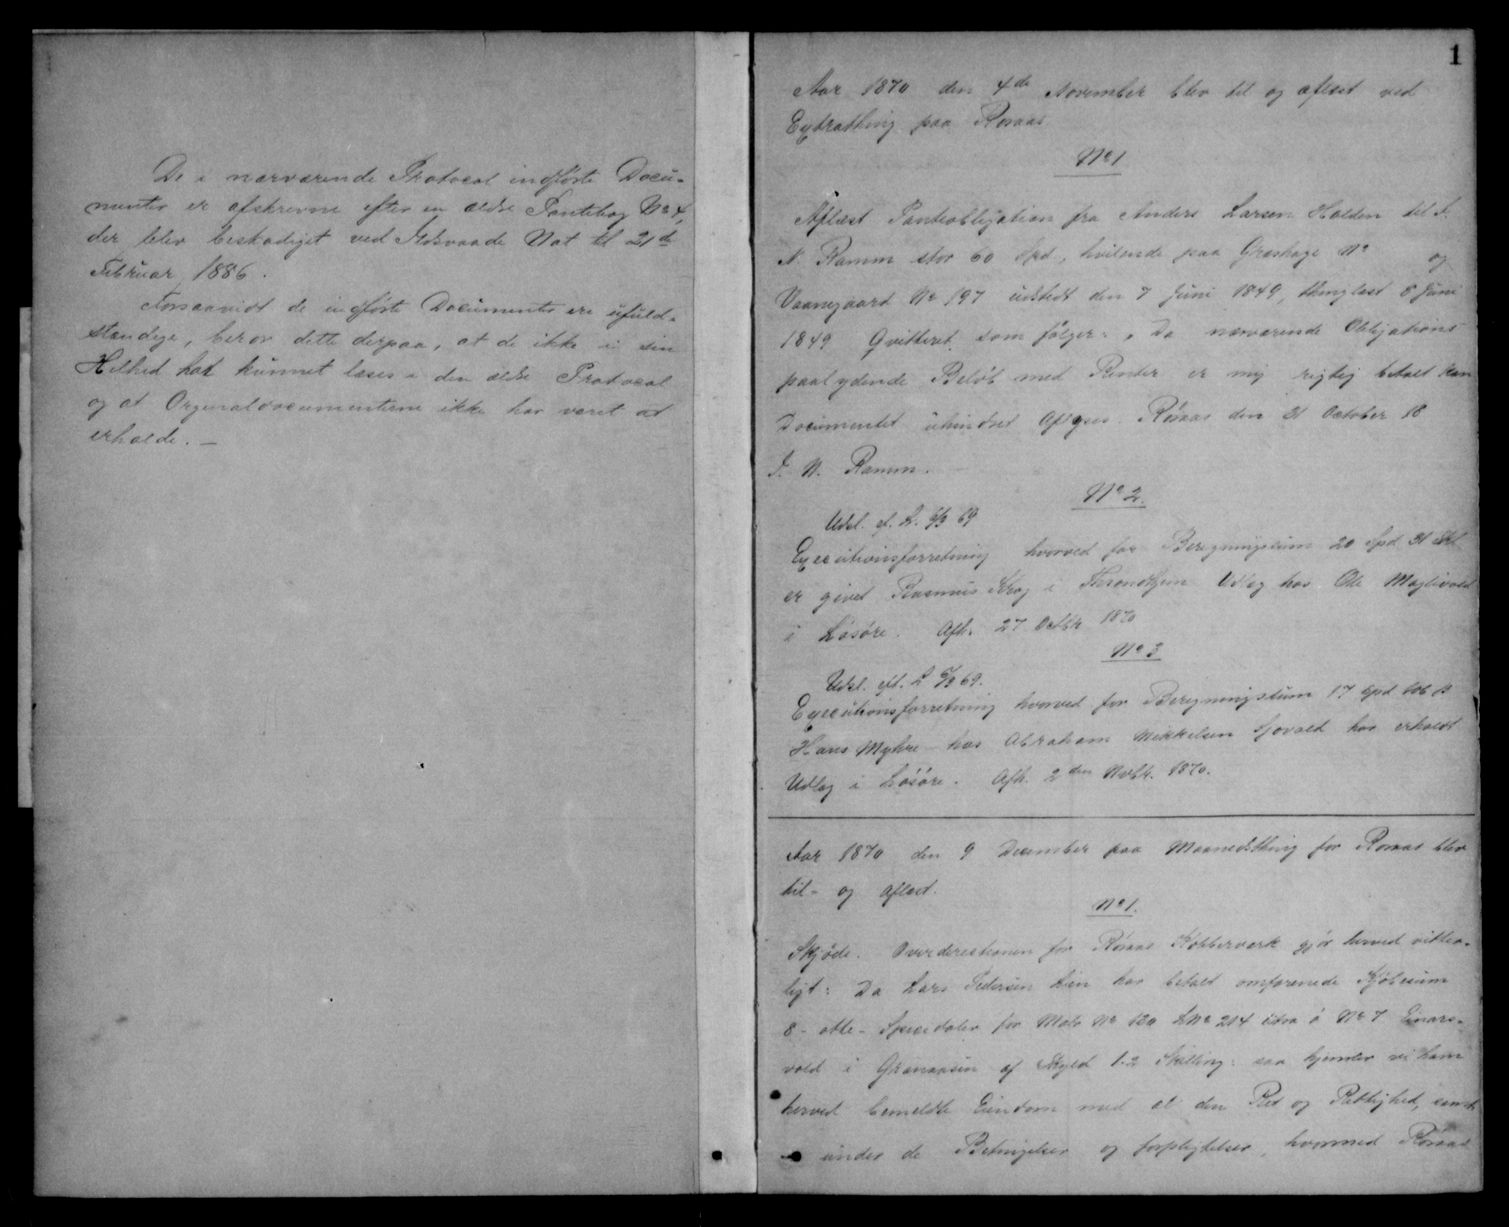 De i nærværende Protocol indførte Docu-
menter er afskrevne efter en ældre Pantebog No 4,
der blev beskadiget ved Ildsvaade Nat til 21de
Februar 1886.
Forsaavidt de indførte Documenter ere ufuld-
stændige, beror dette derpaa, at de ikke i sin
Helhed har kunnet læses i den ældre Protocol
og at Orginaldocumenterne ikke har været at
erholde. —
1
Aar 1870 den 4de November blev til og aflæst ved
Extrathing paa Røraas
No 1
Aflæst Panteobligation fra Anders Larsen Holden til I.
N. Ramm stor 60 Spd, hvilende paa Græshage No og
Vaanegaard No 197 udstedt den 7 Juni 1849, thinglæst 8 Juni
1849 Qvitteret som følger: „Da nærværende Obligations
paalydende Beløb med Renter er mig rigtig betalt kan
Documentet uhindret Aflyses. Røraas den 31 October 18
I. N. Ramm.
No 2.
Udsl. ef. L. 6/3 69
Executionsforretning hvorved for Beregningssum 20 Spd 31 Skl
er givet Rasmus Krog i Throndhjem Udlæg hos Ole
i Løsøre. Afh. 27 Octbr 1870
No 3
Udsl. eft. L 6/3 69.
Executionsforretning hvorved for Beregningssum 17 Spd 106 β
Hans Myhre hos Abraham Mikkelsen har erholdt
Udlæg i Løsøre. Afh. 2den Novbr. 1870.
Aar 1870 den 9 December paa Maanedsthing for Røraas blev
til- og aflæst.
No 1.
Skjøde. Overdirectionen for Røraas Kobberværk gjør herved vitter-
ligt: Da Lars Pedersen Lien har betalt omforenede Kjøbesum
8 - otte - Speciedaler for Matr No 120 LNo 214 No 7 Einars-
vold i Grenaasen af Skyld 1-2 Skilling: saa hjemler vi ham
herved bemeldte Eiendom med al den Ret og Rettighed, samt
under de Betingelser og forpligtelser, hvormed Røraas